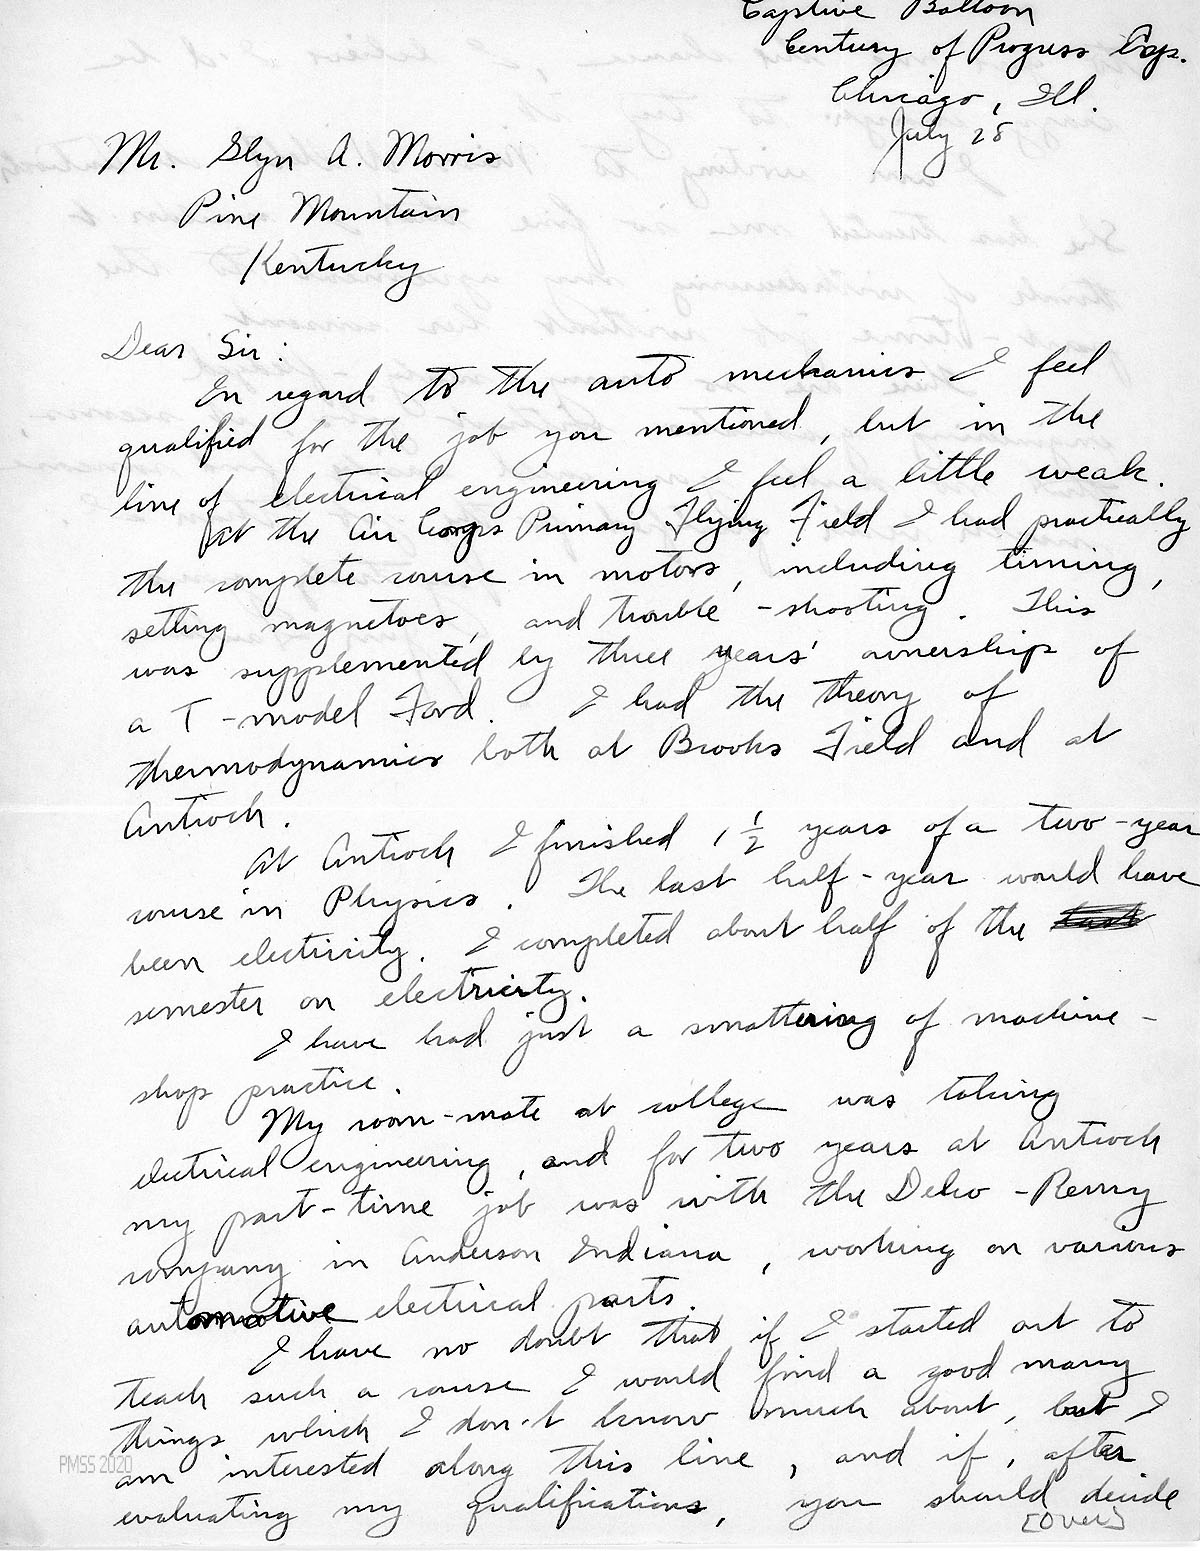 Captive Balloon
Century of Progress Exp.
Chicago, Ill.
July 28
Mr. Glyn A. Morris
Pine Mountain
Kentucky
Dear Sir:
In regard to the auto mechanics I feel
qualified for the job you mentioned, but in the
line of electrical engineering I feel a little weak.
At the Air Corps Primary Flying Field I had practically
the complete course in motors, including timing,
setting magnetoes, and trouble-shooting. This
was supplemented by three years' ownership of
a T-model Ford. I had the theory of
thermodynamics both at Brooks Field and at
Antioch.
At Antioch I finished 1 1/2 years of a two-year
course in Physics. The last half-year would have
been electricity. I completed about half of the
semester on electricity.
I have had just a smattering of machine-
shop practice.
My room-mate at college was taking
electrical engineering, and for two years at Antioch
my part-time job was with the Delco-Remy
company in Anderson Indiana, working on various
automotive electrical parts.
I have no doubt that if I started out to
teach such a course I would find a good many
things which I don't know much about, but I
am interested along this line, and if, after
evaluating my qualifications, you should decide
[Over]
PMSS 2020